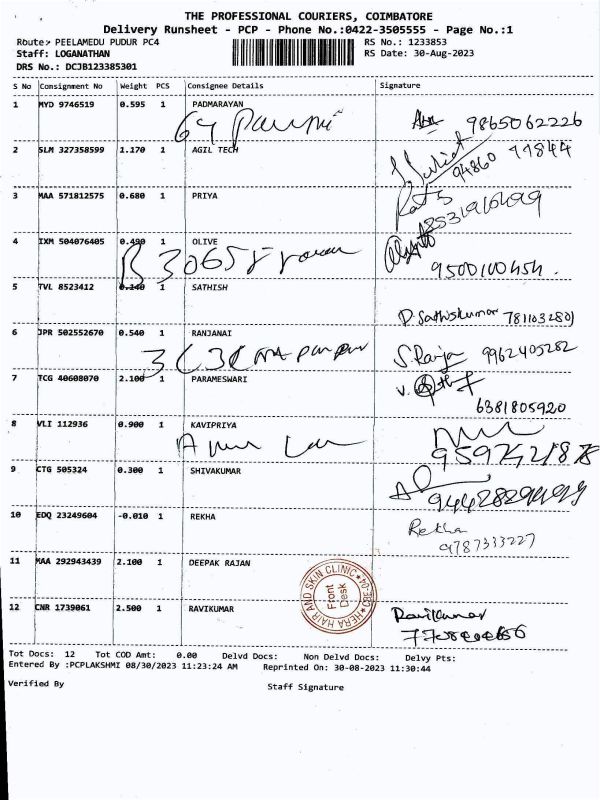 THE PROFESSIONAL COURIERS, COIMBATORE
Delivery Runsheet - PCP - Phone No.:0422-3505555 - Page No.:1
Route> PEELAMEDU PUDUR PC4 RS No.: 1233853
Staff: LOGANATHAN RS Date: 30-Aug-2023
DRS No.: DCJB123385301
S No Consignment No Weight PCS Consignee Details Signature
1 MYD 9746519 0.595 1 PADMARAYAN
9865062226
2 SLM 327358599 1.170 1 AGIL TECH
94860 77844
3 MAA 571812575 0.680 1 PRIYA
4 IXM 504076405 0.490 1 OLIVE
B 3065
9500100454.
5 TVL 8523412 0.140 1 SATHISH
P. Sathiskumar 7811032801
6 JPR 502552670 0.540 1 RANJANAI
S. Ranja 9962405282
7 TCG 40608070 2.100 1 PARAMESWARI
6381805920
8 VLI 112936 0.900 1 KAVIPRIYA
9 CTG 505324 0.300 1 SHIVAKUMAR
10 EDQ 23249604 -0.010 1 REKHA
Rekha
9787333227
11 MAA 292943439 2.100 1 DEEPAK RAJAN
HERA HAIR AND SKIN CLINIC
Front
Desk
12 CNR 1739061 2.500 1 RAVIKUMAR
Ravikumar
Tot Docs: 12 Tot COD Amt: 0.00 Delvd Docs: Non Delvd Docs: Delvy Pts:
Entered By :PCPLAKSHMI 08/30/2023 11:23:24 AM Reprinted On: 30-08-2023 11:30:44
Verified By Staff Signature